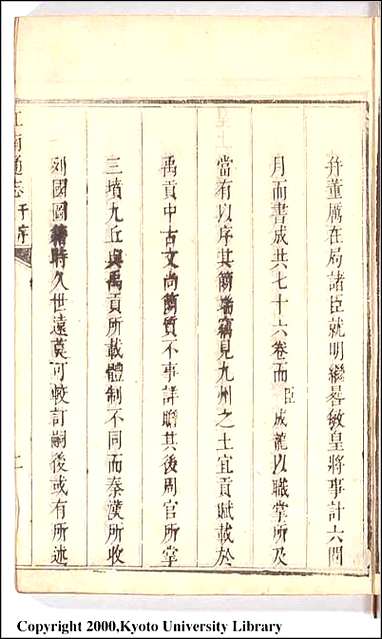 幷董厲在局諸臣就明繼晷敏皇將事計六閱
月而書成共七十六卷而臣成龍以職掌所及
當有以序其簡端竊見九州之土宜貢賦載於
禹貢中古文尚簡質不事詳贍其後周官所掌
三墳九丘與禹貢所載體制不同而秦漢所收
列國圖籍時久世遠莫可較訂嗣後或有所述
江南通志 于序
Copyright 2000,Kyoto University Library